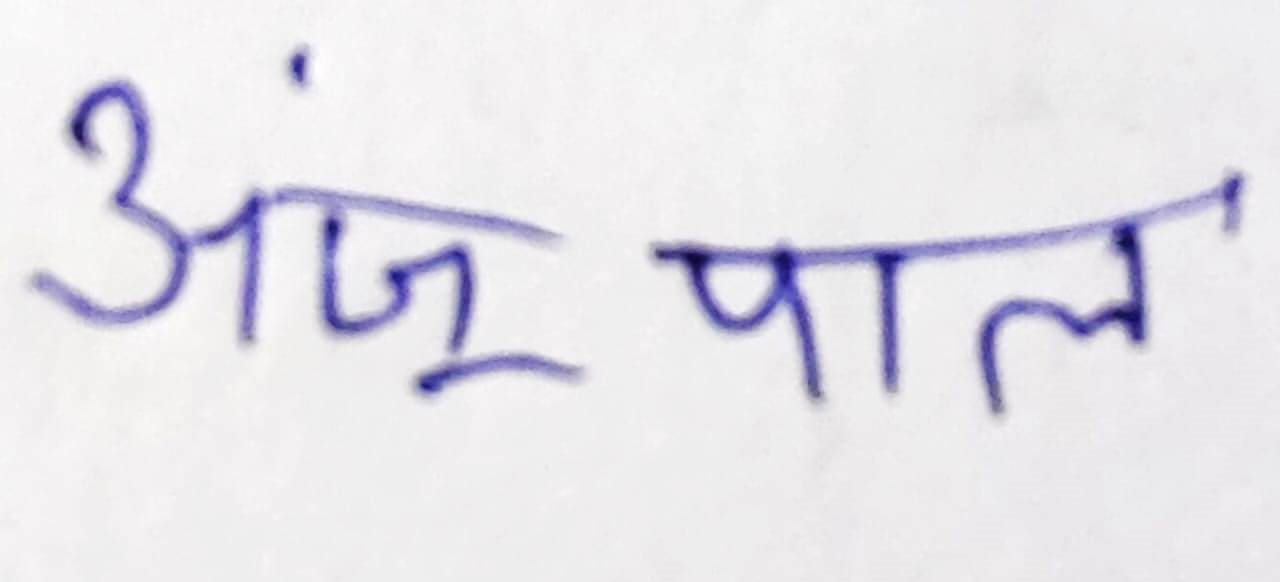 अंजू पाल